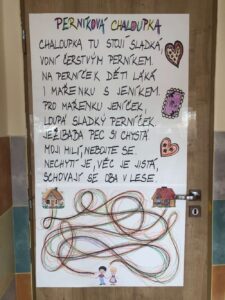 PERNÍKOVÁ CHALOUPKA
CHALOUPKA TU STOJÍ SLADKÁ,
VONÍ ČERSTVÝM PERNÍKEM.
NA PERNÍČEK DĚTI LÁKÁ
I MAŘENKU S JENÍKEM.
PRO MAŘENKU JENÍČEK,
LOUPÁ SLADKÝ PERNÍČEK.
JEŽIBABA PEC SI CHYSTÁ
MOJI MILÍ, NEBOJTE SE.
NECHYTÍ JE, VĚC JE JISTÁ,
SCHOVAJÍ SE OBA V LESE.